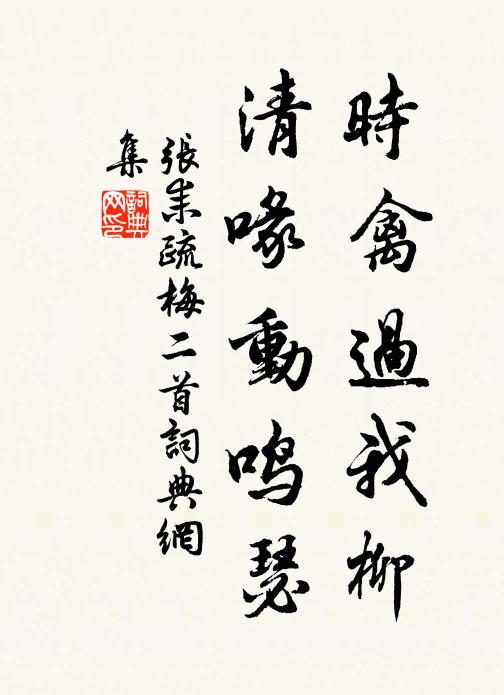 時禽過我柳
清喙動鸣瑟
張耒疏梅二首詞典網
集
詞典网印